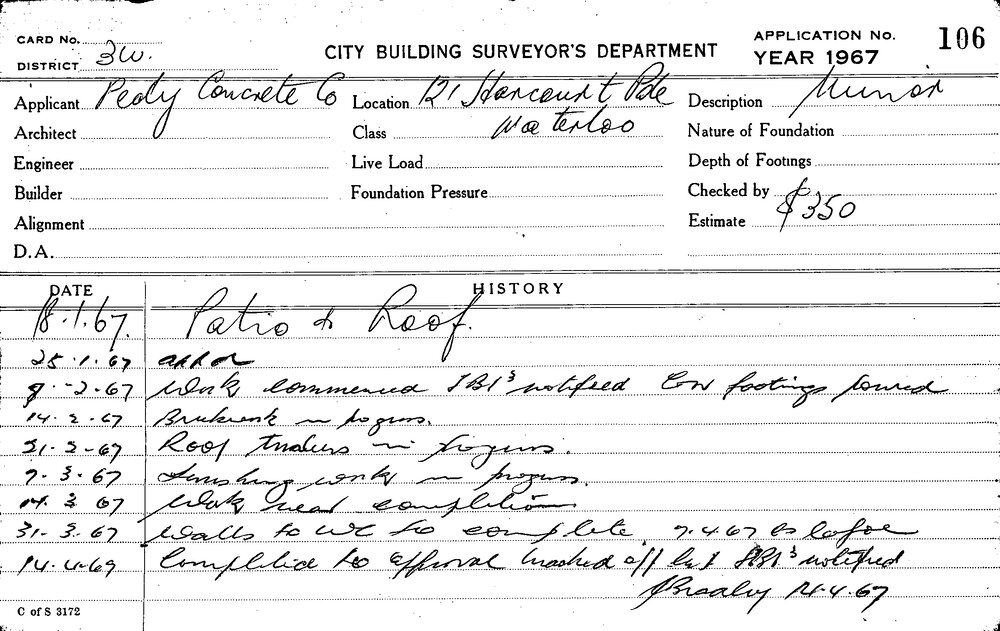 CARD No.
DISTRICT 3W.
CITY BUILDING SURVEYOR'S DEPARTMENT
APPLICATION No. 106
YEAR 1967
Applicant Peaty Concrete Co Location 121 Harcourt Pde Description Minor
Architect Class Waterloo Nature of Foundation
Engineer Live Load Depth of Footings
Builder Foundation Pressure Checked by
Alignment Estimate $350
D.A.
DATE HISTORY
18.1.67. Patio & Roof.
25.1.67
9.-2-67 Work commenced notified Con footings poured
14.2.67 Brickwork in progress.
21-2-67 Roof timbers in progress.
7.3.67 Finishing works in progress.
14.3.67 Work near completion
31.3.67 Walls to WC to complete 7.4.67 as before
14.4.67 Completed to approval marked off list notified
14.4.67
C of S 3172